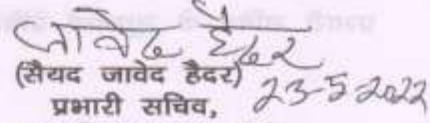 जावेद हैदर
(सैयद जावेद हैदर)
23-5-2022
प्रभारी सचिव,